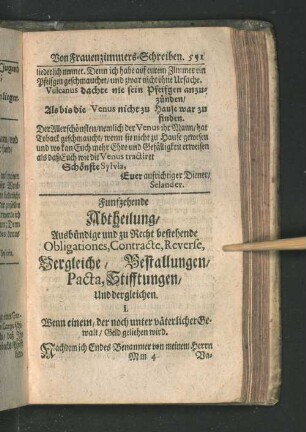 Von Frauenzimmers-Schreiben. 591
liederlich nennet. Denn ich habe auf eurem Zimmer ein
Pfeifgen geschmauchet / und zwar nicht ohne Ursache.
Vulcanus dachte nie sein Pfeifgen anzu-
zünden /
Als bis die Venus nicht zu Hause war zu
finden.
Der Allerschönsten / nemlich der Venus ihr Mann / hat
Toback geschmaucht / wenn sie nicht zu Hause gewesen
und wo kan Euch mehr Ehre und Gefälligkeit erweisen
als daß Euch wie die Venus tractiret
Schönste Sylvia,
Euer aufrichtiger Diener /
Selander.
Funfzehende
Abtheilung /
Ausbündige und zu Recht bestehende
Obligationes, Contracte, Reverse,
Vergleiche / Bestallungen /
Pacta, Stifftungen /
Und dergleichen.
I.
Wenn einem / der noch unter väterlicher Ge-
walt / Geld geliehen wird.
Nachdem ich Endes Benannter von meinem Herrn
Mm 4 Va-